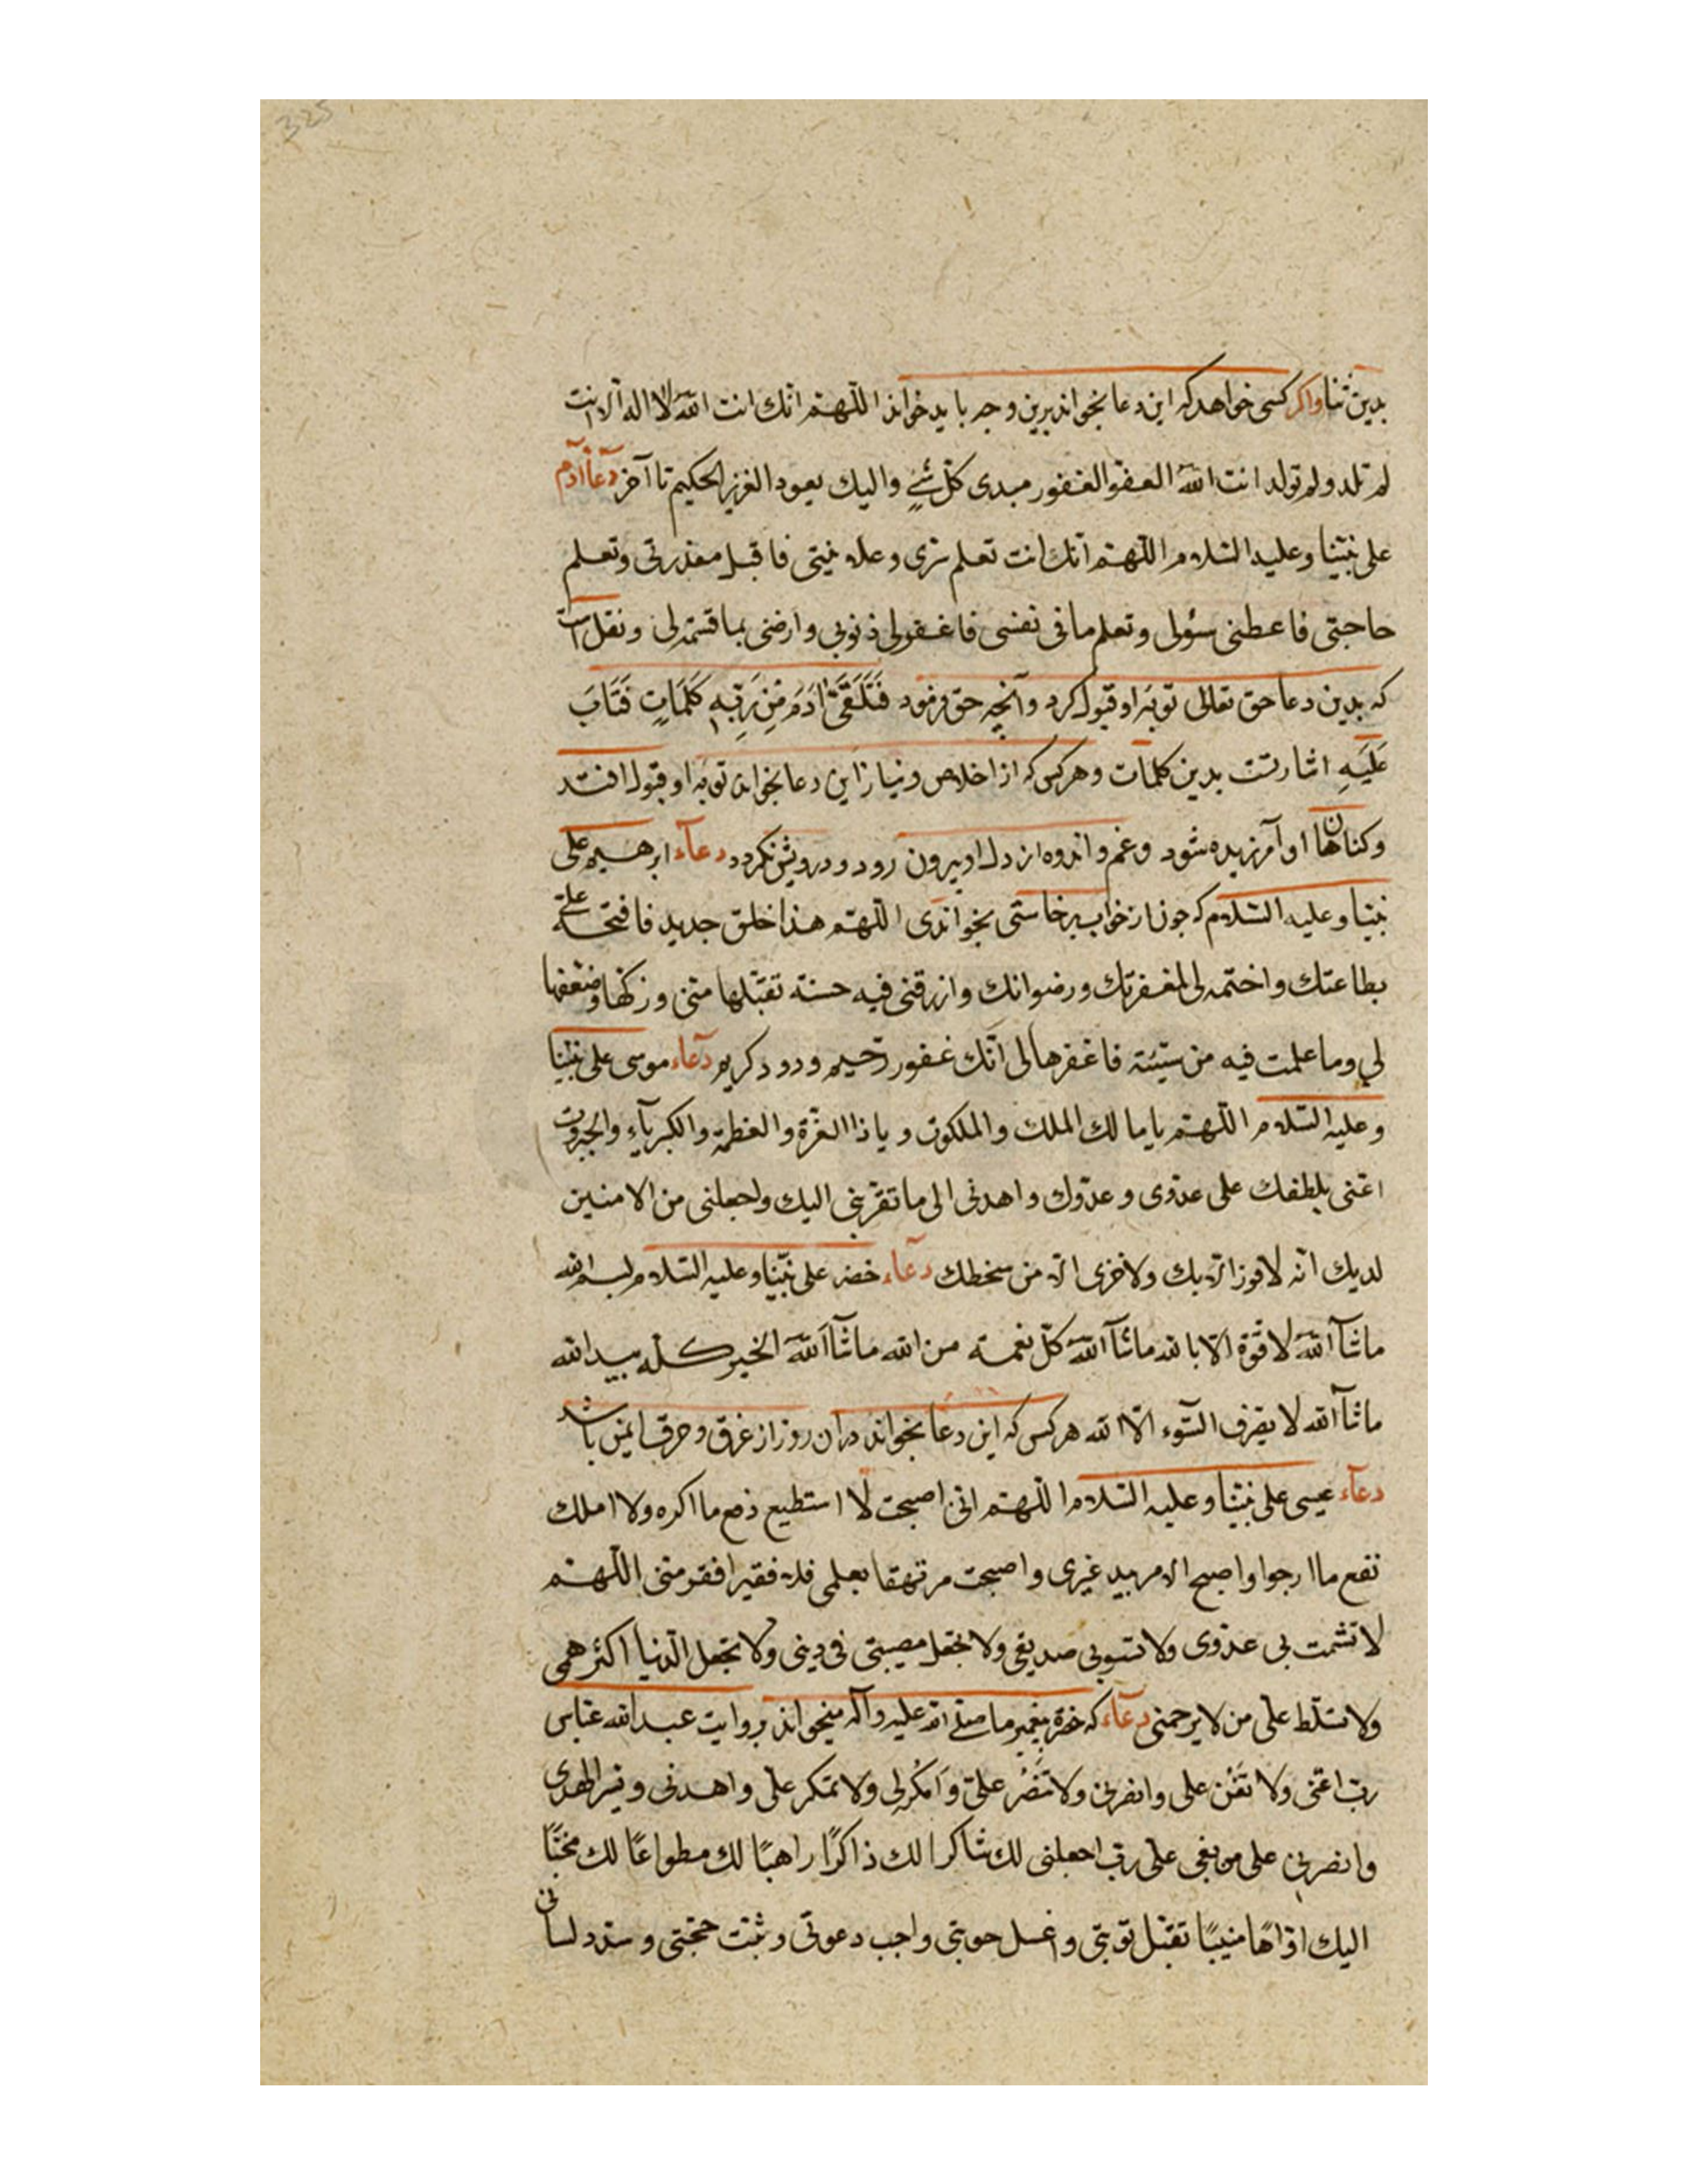 325
بدین ثنا واکر کسی خواهد که این دعا بخواند برین وجه باید خواند اللّهمّ انّك انت اللّه لا اله الا انت
لم تلد ولم تولد انت اللّه العفوّ الغفور مبدی کلّ شیءٍ والیك یعود العزیز الحکیم تا آخر دعاء آدم
علی نبیّنا وعلیه السّلام اللّهمّ انّك انت تعلم سرّی وعلانیتی فاقبل معذرتی وتعلم
حاجتی فاعطنی سؤلی وتعلم ما فی نفسی فاغفر لی ذنوبی وارضنی بما قسمته لی ونقل است
که بدین دعا حق تعالی توبهٔ او قبول کرد وآنچه حق فرمود فَتَلَقَّیٰ اٰدَمُ مِن رَبِّهِ کَلِمَاتٍ فَتَابَ
عَلَیهِ اشارتست بدین کلمات وهر کس که از اخلاص ونیاز این دعا بخواند توبهٔ او قبول افتد
وکناهان او آمرزیده شود وغم واندوه از دل او بیرون رود ودرویش نکردد دعآء ابرهیم علی
نبیّنا وعلیه السّلام که جون از خواب برخاستی بخواندی اللّهمّ هذا خلق جدید فافتحه علیّ
بطاعتك واختمه لی بمغفرتك ورضوانك وارزقنی فیه حسنة تقبّلها منّی وزکّها وضعّفها
لی وما علمت فیه من سیّئة فاغفرها لی انّك غفور رّحیم ودود کریم دعاء موسی علی نبیّنا
وعلیه السّلام اللّهمّ یا مالك الملك والملکوت ویا ذا العزّة والعظمة والکبریآء والجبروت
اعنّی بلطفك علی عدوّی وعدوّك واهدنی الی ما تقرّبنی الیك واجعلنی من الامنین
لدیك انّه لا فوز الّا بك ولا خزی الّا من سخطك دعآء خضر علی نبیّنا وعلیه السّلام بسم اللّه
ماشآ اللّه لا قوّة الّا باللّه ماشآ اللّه کلّ نعمة من اللّه ماشآ اللّه الخیر کلّه بید اللّه
ماشآ اللّه لا یصرف السّوء الّا اللّه هر کس که این دعا بخواند دران روز از غرق وحرق ایمن باشد
دعآء عیسی علی نبیّنا وعلیه السّلام اللّهمّ انّی اصبحت لا استطیع دفع ما اکره ولا املك
نفع ما ارجوا واصبح الامر بید غیری واصبحت مرتهنا بعلمی فلا فقیر افقر منّی اللّهمّ
لا تشمت بی عدوّی ولا تسو بی صدیقی ولا تجعل مصیبتی فی دینی ولا تجعل الدّنیا اکثر همّی
ولا تسلّط علیّ من لا یرحمنی دعآء که حضرة بیغمبر ما صلّی اللّه علیه وآله میخواند بروایت عبد اللّه عبّاس
ربّ اعنّی ولا تُعِن علیّ وانصرنی ولا تَنصُر علیّ وَامکُر لی ولا تمکر علیّ واهدنی ویسّر الهدی
وانصرنی علی من بغی علیّ ربّ اجعلنی لك شاکرا لك ذاکرًا راهبًا لك مطواعًا لك مخبتًا
الیك اوّاهًا منیبًا تقبّل توبتی واغسل حوبتی واجب دعوتی وثبّت حجّتی وسدّد لسانی